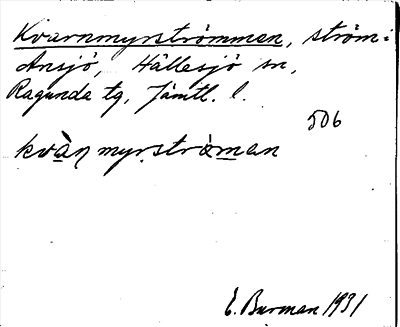 Kvarnmyrströmmen, ström i
Ansjö, Hällesjö sn,
Ragunda tg, Jämtl. l.
506
kvàn myrstràman
E. Burman 1931